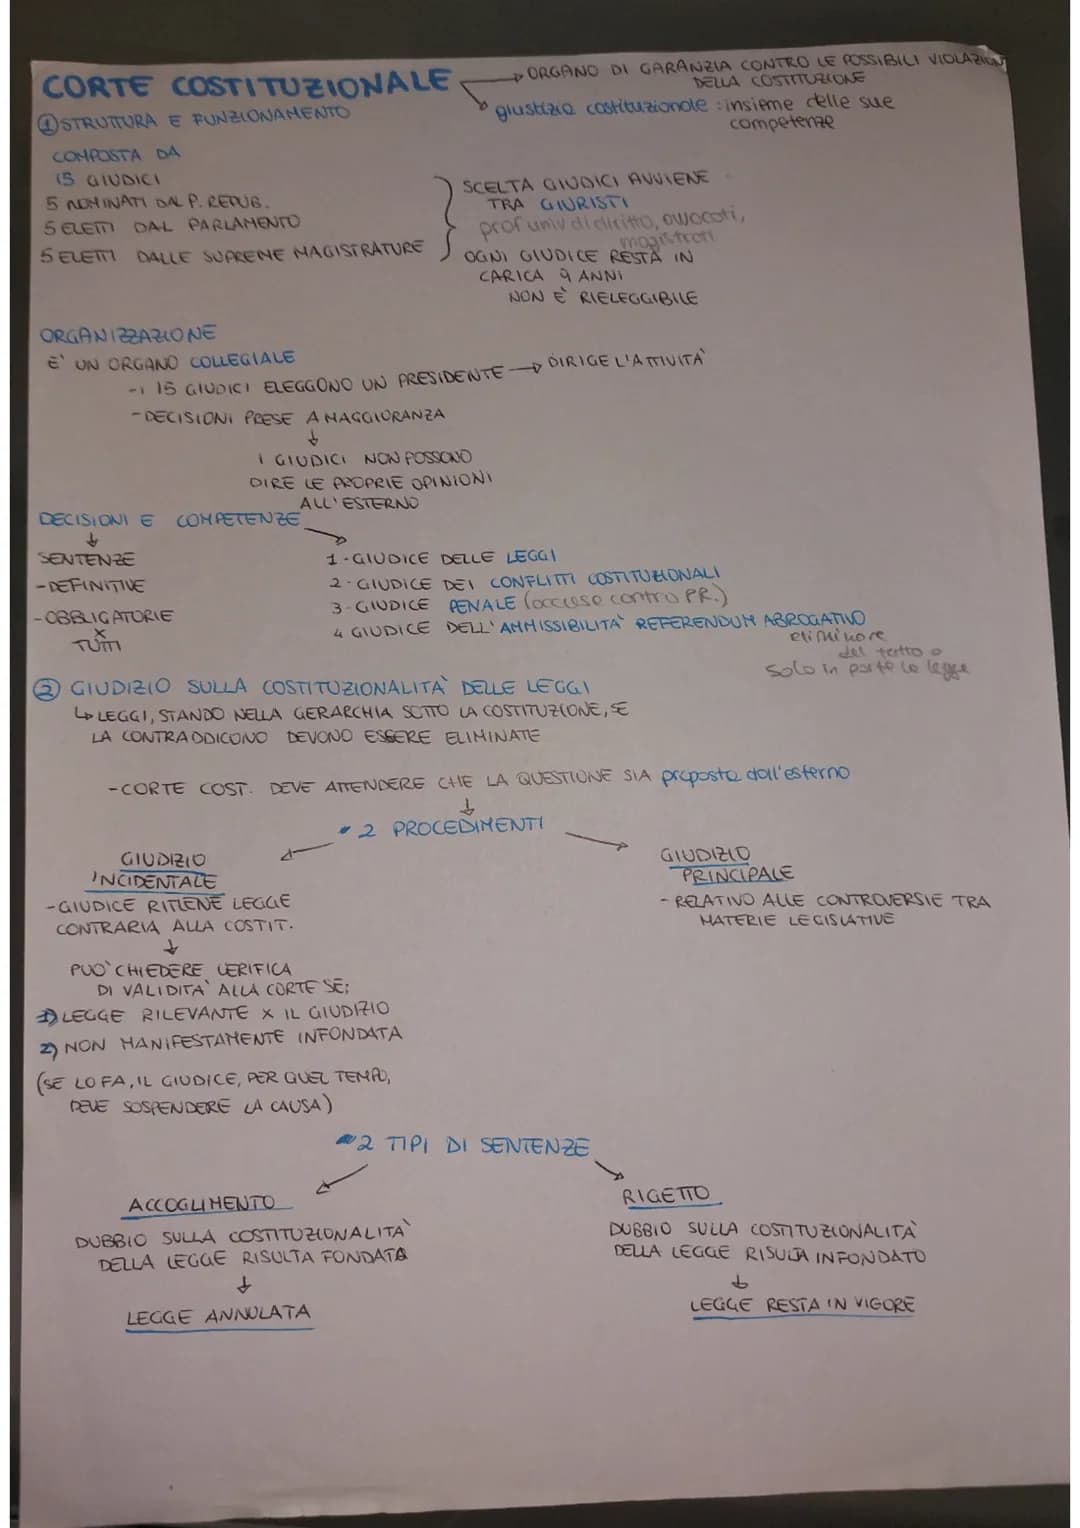 CORTE COSTITUZIONALE → ORGANO DI GARANZIA CONTRO LE POSSIBILI VIOLAZIONI
DELLA COSTITUZIONE
giustizia costituzionale : insieme delle sue
competenze
① STRUTTURA E FUNZIONAMENTO
COMPOSTA DA
15 GIUDICI
5 NOMINATI DAL P. REPUB.
5 ELETTI DAL PARLAMENTO
5 ELETTI DALLE SUPREME MAGISTRATURE
SCELTA GIUDICI AVVIENE
TRA GIURISTI
prof univ di diritto, avvocati,
magistrati
OGNI GIUDICE RESTA IN
CARICA 9 ANNI
NON È RIELEGGIBILE
ORGANIZZAZIONE
E' UN ORGANO COLLEGIALE
- I 15 GIUDICI ELEGGONO UN PRESIDENTE → DIRIGE L'ATTIVITÀ
- DECISIONI PRESE A MAGGIORANZA
↓
I GIUDICI NON POSSONO
DIRE LE PROPRIE OPINIONI
ALL'ESTERNO
DECISIONI E COMPETENZE
↓
SENTENZE
- DEFINITIVE
- OBBLIGATORIE
X
TUTTI
1 - GIUDICE DELLE LEGGI
2 - GIUDICE DEI CONFLITTI COSTITUZIONALI
3 - GIUDICE PENALE (accuse contro PR.)
4 GIUDICE DELL'AMMISSIBILITÀ REFERENDUM ABROGATIVO
eliminare
del tutto o
solo in parte la legge
② GIUDIZIO SULLA COSTITUZIONALITÀ DELLE LEGGI
↳ LEGGI, STANDO NELLA GERARCHIA SOTTO LA COSTITUZIONE, SE
LA CONTRADDICONO DEVONO ESSERE ELIMINATE
- CORTE COST. DEVE ATTENDERE CHE LA QUESTIONE SIA proposta dall'esterno
↓
2 PROCEDIMENTI
GIUDIZIO
INCIDENTALE
- GIUDICE RITIENE LEGGE
CONTRARIA ALLA COSTIT.
↓
PUO' CHIEDERE VERIFICA
DI VALIDITÀ ALLA CORTE SE:
1) LEGGE RILEVANTE X IL GIUDIZIO
2) NON MANIFESTAMENTE INFONDATA
(SE LO FA, IL GIUDICE, PER QUEL TEMPO,
DEVE SOSPENDERE LA CAUSA)
GIUDIZIO
PRINCIPALE
- RELATIVO ALLE CONTROVERSIE TRA
MATERIE LEGISLATIVE
2 TIPI DI SENTENZE
ACCOGLIMENTO
DUBBIO SULLA COSTITUZIONALITÀ
DELLA LEGGE RISULTA FONDATA
↓
LEGGE ANNULATA
RIGETTO
DUBBIO SULLA COSTITUZIONALITÀ
DELLA LEGGE RISULTA INFONDATO
↓
LEGGE RESTA IN VIGORE